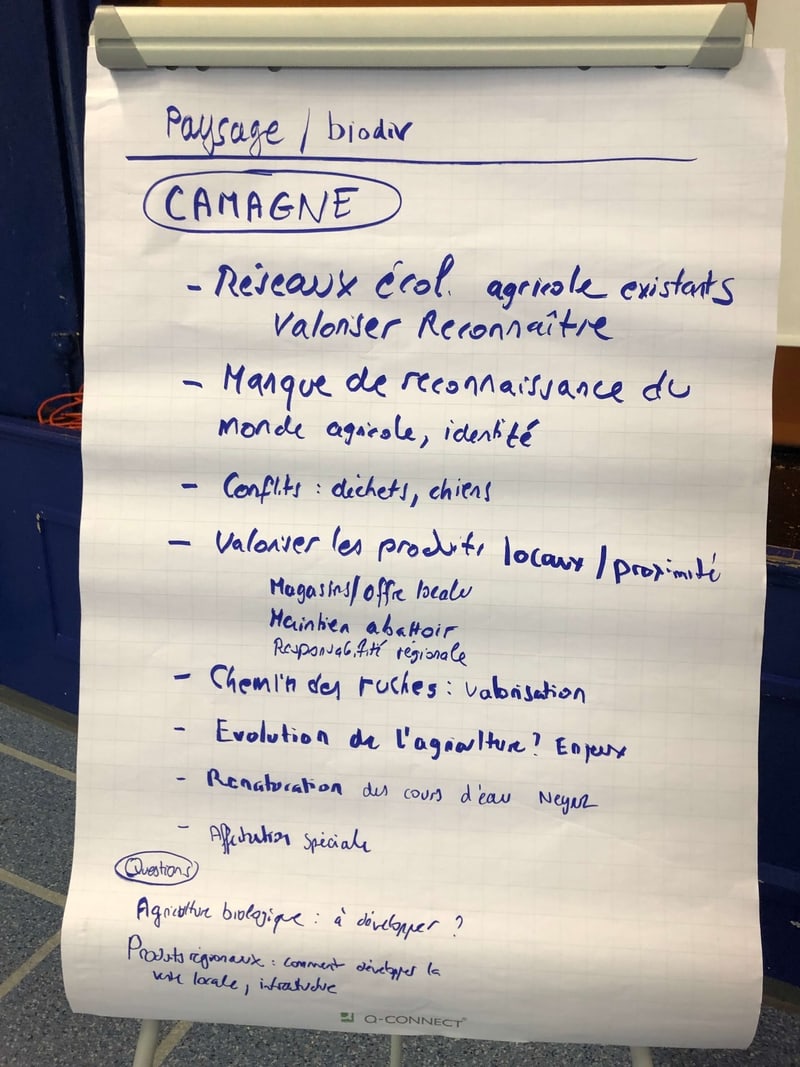 Paysage / biodiv
CAMAGNE
- Réseaux écol. agricole existants
Valoriser Reconnaître
- Manque de reconnaissance du
monde agricole, identité
- Conflits : déchets, chiens
- Valoriser les produits locaux / proximité
Magasins/offre locale
Maintien abattoir
Responsabilité régionale
- Chemin des ruches : valorisation
- Evolution de l'agriculture ? Enjeux
- Renaturation des cours d'eau
- Affectation spéciale
Questions
Agriculture biologique : à développer ?
Produits régionaux : comment développer la
vente locale, infrastructure
Q-CONNECT